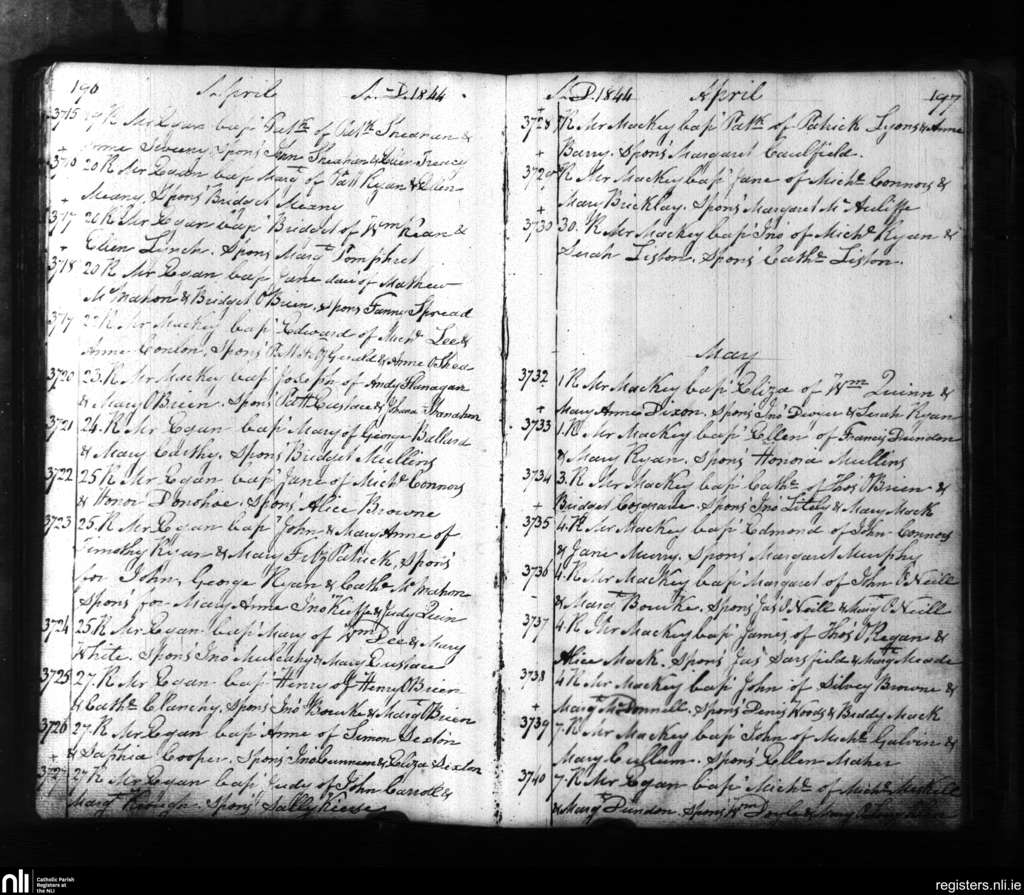 190 April A.D. 1844
3715 19 R Mr Egan bapd Patk of Patk Sheahan &
Anne Sweeny, Spons
20 R Mr Egan bap Margt of Patt Ryan & Ellen
Meany, Spons Bridget Meany
3717 20 R Mr Egan bapd Bridget of Wm Kean &
Ellen Lynch. Spons Margt Pomphret
3718 20 R Mr Egan bapd Jane daur of Mathew
McMahon & Bridget O'Brien. Spons Fanny Spread
R Mr Mackey bapd Edward of Michl Lee &
Anne Conlon, Spons Fitz Gerald & Anne O'Shea
3720 23. R Mr Mackey bapd Joseph of Andy Flanagan
& Mary O'Brien. Spons Patt Eustace & Johana Shanahan
3721 24. R Mr Egan bapd Mary of George Ballard
& Mary Carthy. Spons Bridget Mullins
3722 25 R Mr Egan bapd Jane of Michl Connors
& Honor Donohoe. Spons Alice Browne
3723 25. R Mr Egan bapd John & Mary Anne of
Timothy Ryan & Mary Fitz Patrick, Spons
for John, George Ryan & Cathe McMahon
Spons for Mary Anne Jno Keeffe & Judy Quin
3724 25 R Mr Egan bapd Mary of Wm Lee & Mary
White. Spons Jno Mulcahy & Mary Eustace
3725 27. R Mr Egan bapd Henry of Henry O'Brien
& Cathe Clanchy. Spons Jno Bourke & Margt O'Brien
3726 27. R Mr Egan bapd Anne of Simon Sexton
& Sophia Cooper. Spons & Eliza Sexton
3727 27 R Mr Egan bapd Judy of John Carroll &
Margt Keough. Spons Sally Kiesse
A.D. 1844 April 197
3728 R Mr Mackey bapd Patk of Patrick Lyons & Anne
Barry. Spons Margaret Caulfield.
R Mr Mackey bapd Jane of Michl Connors &
Mary Buckley. Spons Margaret McAuliffe
3730 30. R Mr Mackey bapd Jno of Michl Ryan &
Sarah Liston. Spons Cathe Liston.
May
3732 1 R Mr Mackey bapd Eliza of Wm Quinn &
Mary Anne Dixon. Spons Jno Dwyer & Sarah Ryan
3733 1. R Mr Mackey bapd Ellen of Francis Dundon
& Mary Ryan. Spons Honora Mullins
3734 3. R Mr Mackey bapd Cathe of Thos O'Brien &
Bridget Cosgrade. Spons Jno & Mary Mack
3735 4. R Mr Mackey bapd Edmond of John Connors
& Jane Murry. Spons Margaret Murphy
3736 4. R Mr Mackey bapd Margaret of John O'Neill
& Margt Bourke. Spons Jas O'Neill & Margt O'Neill
3737 4 R Mr Mackey bapd James of Thos O'Regan &
Alice Mack. Spons Jas Sarsfield & Margt Meade
3738 4 R Mr Mackey bapd John of Silvey Browne &
Margt McDonnell. Spons Denis Woods & Biddy Mack
3739 7. R Mr Mackey bapd John of Michl Galvin &
Mary Cullum. Spons Ellen Maher
3740 7. R Mr Egan bapd Michl of Michl Meskell
& Margt Dundon. Spons Wm Doyle & Mary
nli Catholic Parish
Registers at
the NLI
registers.nli.ie